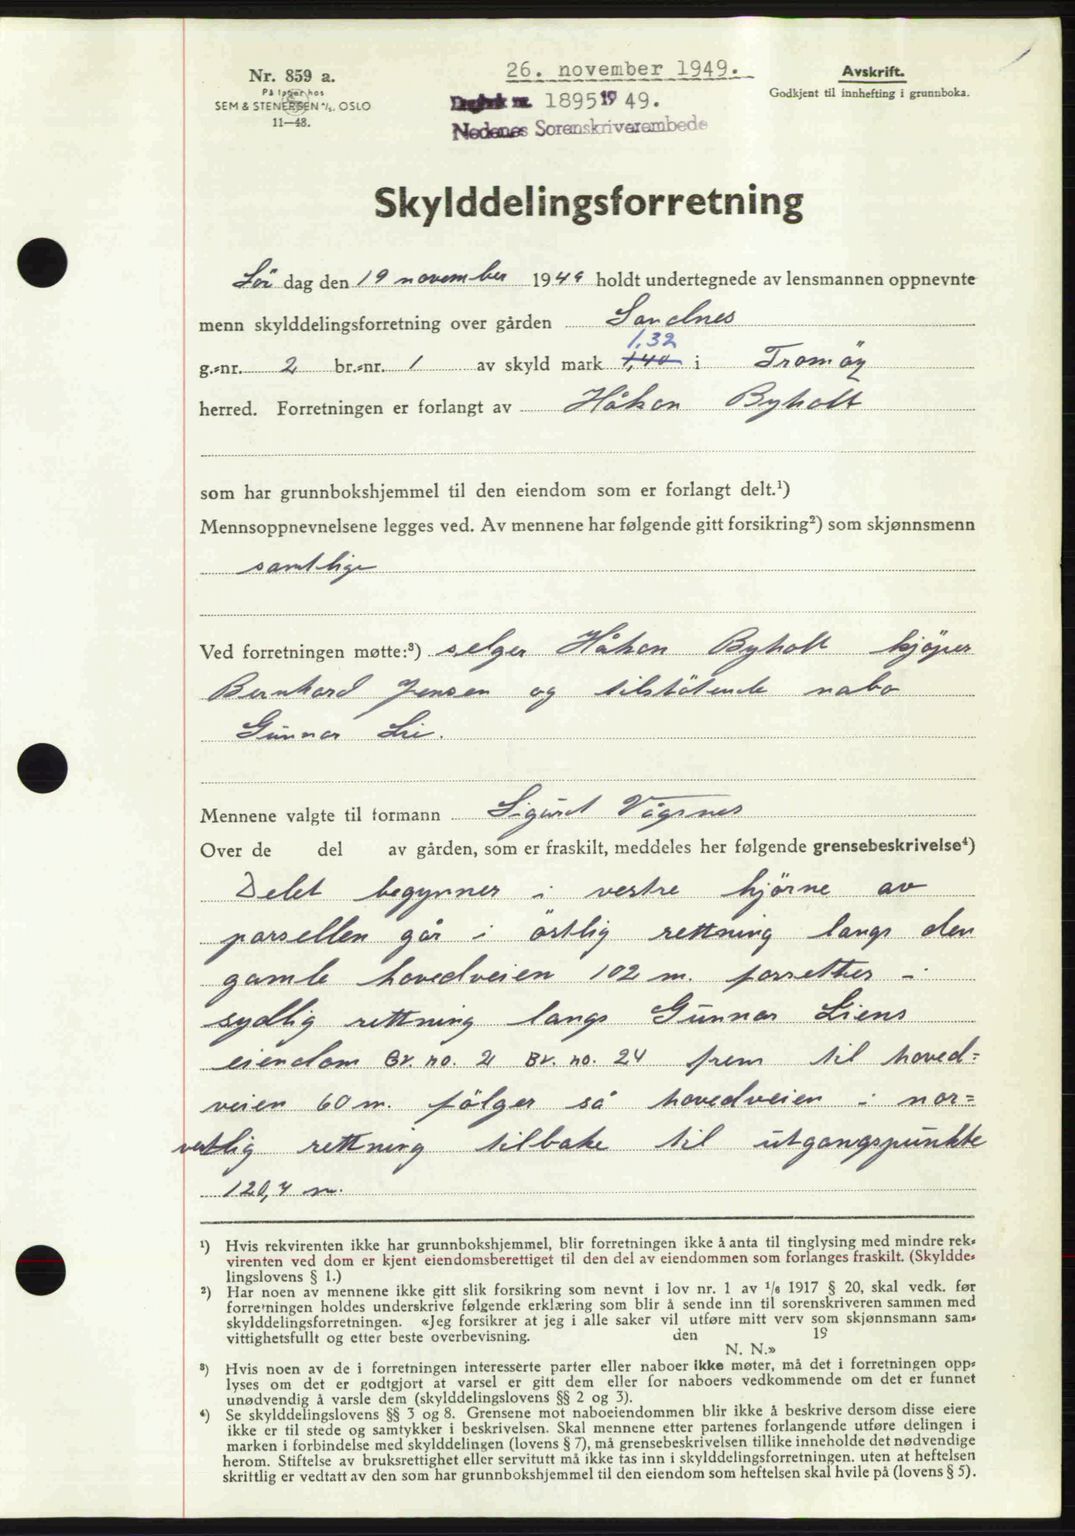 Nr. 859 a.
På lager hos
SEM & STENERSEN A/S. OSLO
11—48.
26. november 1949.
Dagbok nr. 1895 19 49.
Nedenes Sorenskriverembede
Avskrift.
Godkjent til innhefting i grunnboka.
Skylddelingsforretning
Lör dag den 19 november 1949 holdt undertegnede av lensmannen oppnevnte
menn skylddelingsforretning over gården Sandnes
1,32
g.-nr. 2 br.-nr. 1 av skyld mark 1,40 i Tromöy
herred. Forretningen er forlangt av Håkon Byholt
som har grunnbokshjemmel til den eiendom som er forlangt delt.¹)
Mennsoppnevnelsene legges ved. Av mennene har følgende gitt forsikring²) som skjønnsmenn
samtlige
Ved forretningen møtte:³) selger Håkon Byholt kjöper
Bernhard Jensen og tilstötende nabo
Gunnar Lie.
Mennene valgte til formann Sigurd Vågsnes
Over de del av gården, som er fraskilt, meddeles her følgende grensebeskrivelse⁴)
Delet begynner i vestre hjörne av
parsellen går i östlig rettning langs den
gamle hovedveien 102 m. forsetter i
sydlig rettning langs Gunnar Liens
eiendom Gr. no. 2 Br. no. 24 frem til hoved-
veien 60 m. fölger så hovedveien i nor-
vestlig rettning tilbake til utgangspunkte
120,4 m.
¹) Hvis rekvirenten ikke har grunnbokshjemmel, blir forretningen ikke å anta til tinglysing med mindre rek-
virenten ved dom er kjent eiendomsberettiget til den del av eiendommen som forlanges fraskilt. (Skyldde-
lingslovens § 1.)
²) Har noen av mennene ikke gitt slik forsikring som nevnt i lov nr. 1 av 1/6 1917 § 20, skal vedk. før
forretningen holdes underskrive følgende erklæring som blir å sende inn til sorenskriveren sammen med
skylddelingsforretningen. «Jeg forsikrer at jeg i alle saker vil utføre mitt verv som skjønnsmann sam-
vittighetsfullt og etter beste overbevisning. den 19
N. N.»
³) Hvis noen av de i forretningen interesserte parter eller naboer ikke møter, må det i forretningen opp-
lyses om det er godtgjort at varsel er gitt dem eller for naboers vedkommende om det er funnet
unødvendig å varsle dem (skylddelingslovens §§ 2 og 3).
⁴) Se skylddelingslovens §§ 3 og 8. Grensene mot naboeiendommen blir ikke å beskrive dersom disse eiere
ikke er til stede og samtykker i beskrivelsen. Skal mennene etter partenes forlangende utføre delingen i
marken i forbindelse med skylddelingen (lovens § 7), må grensebeskrivelsen tillike inneholde det nødvendige
herom. Stiftelse av bruksrettighet eller servitutt må ikke tas inn i skylddelingsforretningen. uten at heftelsen
skrittlig er vedtatt av den som har grunnbokshjemmel til den eiendom som heftelsen skal hvile på (lovens § 5).